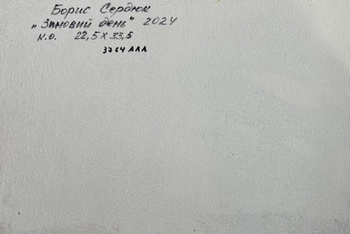 Борис Сердюк
„Зимовий день" 2024
К.О. 22,5 х 33,5
3764 АЛЛ